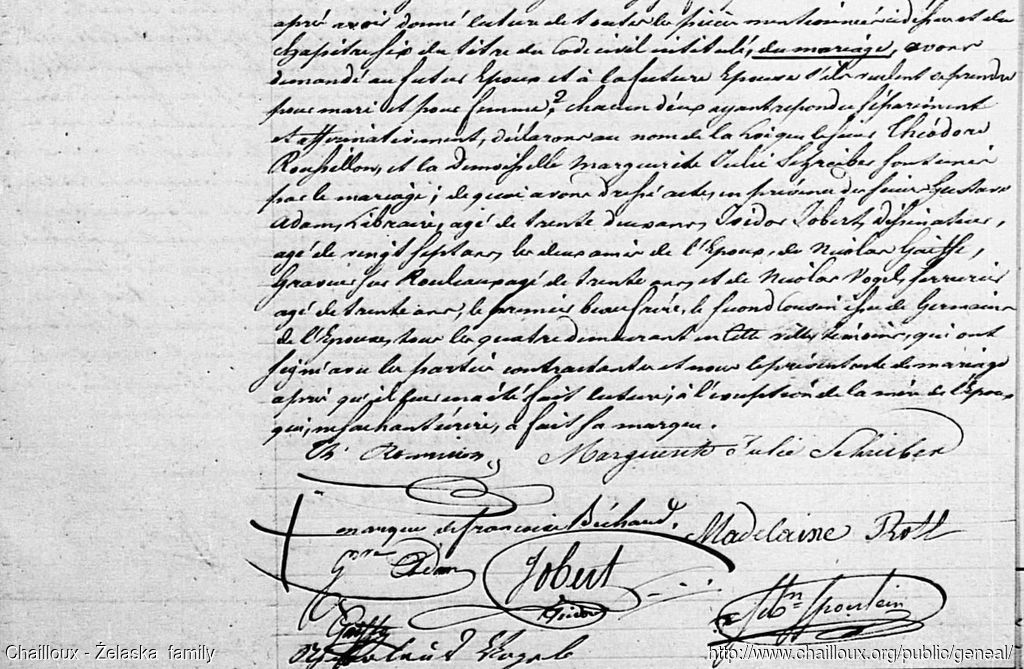 après avoir donné lecture de toutes les pièces mentionnées ci dessus et du
chapitre six du titre du Code civil intitulé, du mariage, avons
demandé au futur Epoux et à la future Epouse s'ils veulent se prendre
pour mari et pour femme? chacun d'eux ayant répondu séparément
et affirmativement, déclarons au nom de la loi que le sieur Théodore
Roussillon, et la Demoiselle Marguerite Julie Schreiber sont unis
par le mariage; de quoi avons dressé acte, en présence du sieur Gustave
Adam, Libraire, agé de trente deux ans, Isidor Jobert, Dessinateur,
agé de vingt sept ans, les deux amis de l'Epoux, de Nicolas Gaiffe,
Graveur sur Rouleaux agé de trente ans, et de Nicolas Vogel, serrurier
agé de trente ans, le premier beaufrère, le second Cousin issu de Germain
de l'Epouse, tous les quatre demeurant en cette ville, témoins, qui ont
signé avec les parties contractantes et nous le présent acte de mariage
après qu'il leur en a été fait lecture, à l'exception de la mère de l'Epoux
qui, ne sachant écrire, a fait sa marque.
Marguerite Julie Schreiber
marque de françoise Béchaud.
Madelaine Rott
Adam
Jobert
Isidor
Gaiffe
Vogel
Chailloux - Želaska family
http://www.chailloux.org/public/geneal/